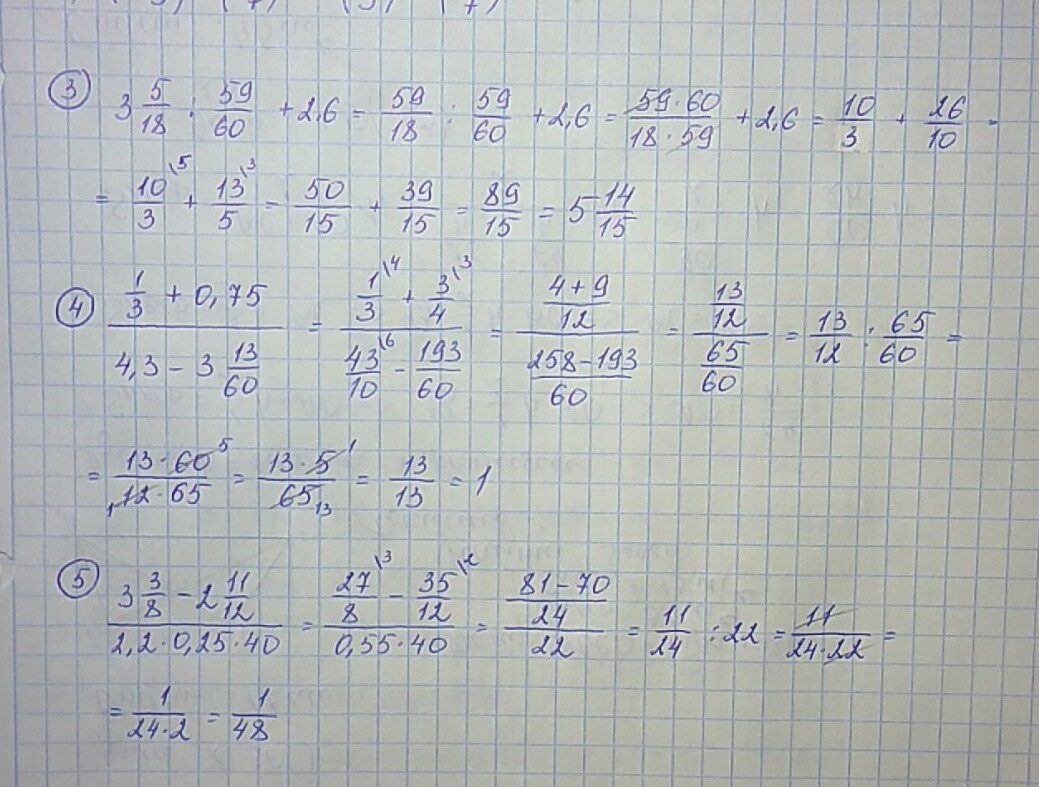 ③ 3 5/18 : 59/60 + 2,6 = 59/18 : 59/60 + 2,6 = 59·60/18·59 + 2,6 = 10/3 + 26/10 =
= 10/3 \5 + 13/5 \3 = 50/15 + 39/15 = 89/15 = 5 14/15
④ (1/3 + 0,75)/(4,3 - 3 13/60) = (1/3 \4 + 3/4 \3)/(43/10 \6 - 193/60) = ((4+9)/12)/((258-193)/60) = (13/12)/(65/60) = 13/12 : 65/60 =
= 13·60 5/1 12·65 = 13·5 1/65 13 = 13/13 = 1
⑤ (3 3/8 - 2 11/12)/(2,2·0,25·40) = (27/8 \3 - 35/12 \2)/(0,55·40) = ((81-70)/24)/22 = 11/24 : 22 = 11/24·22 =
= 1/24·2 = 1/48